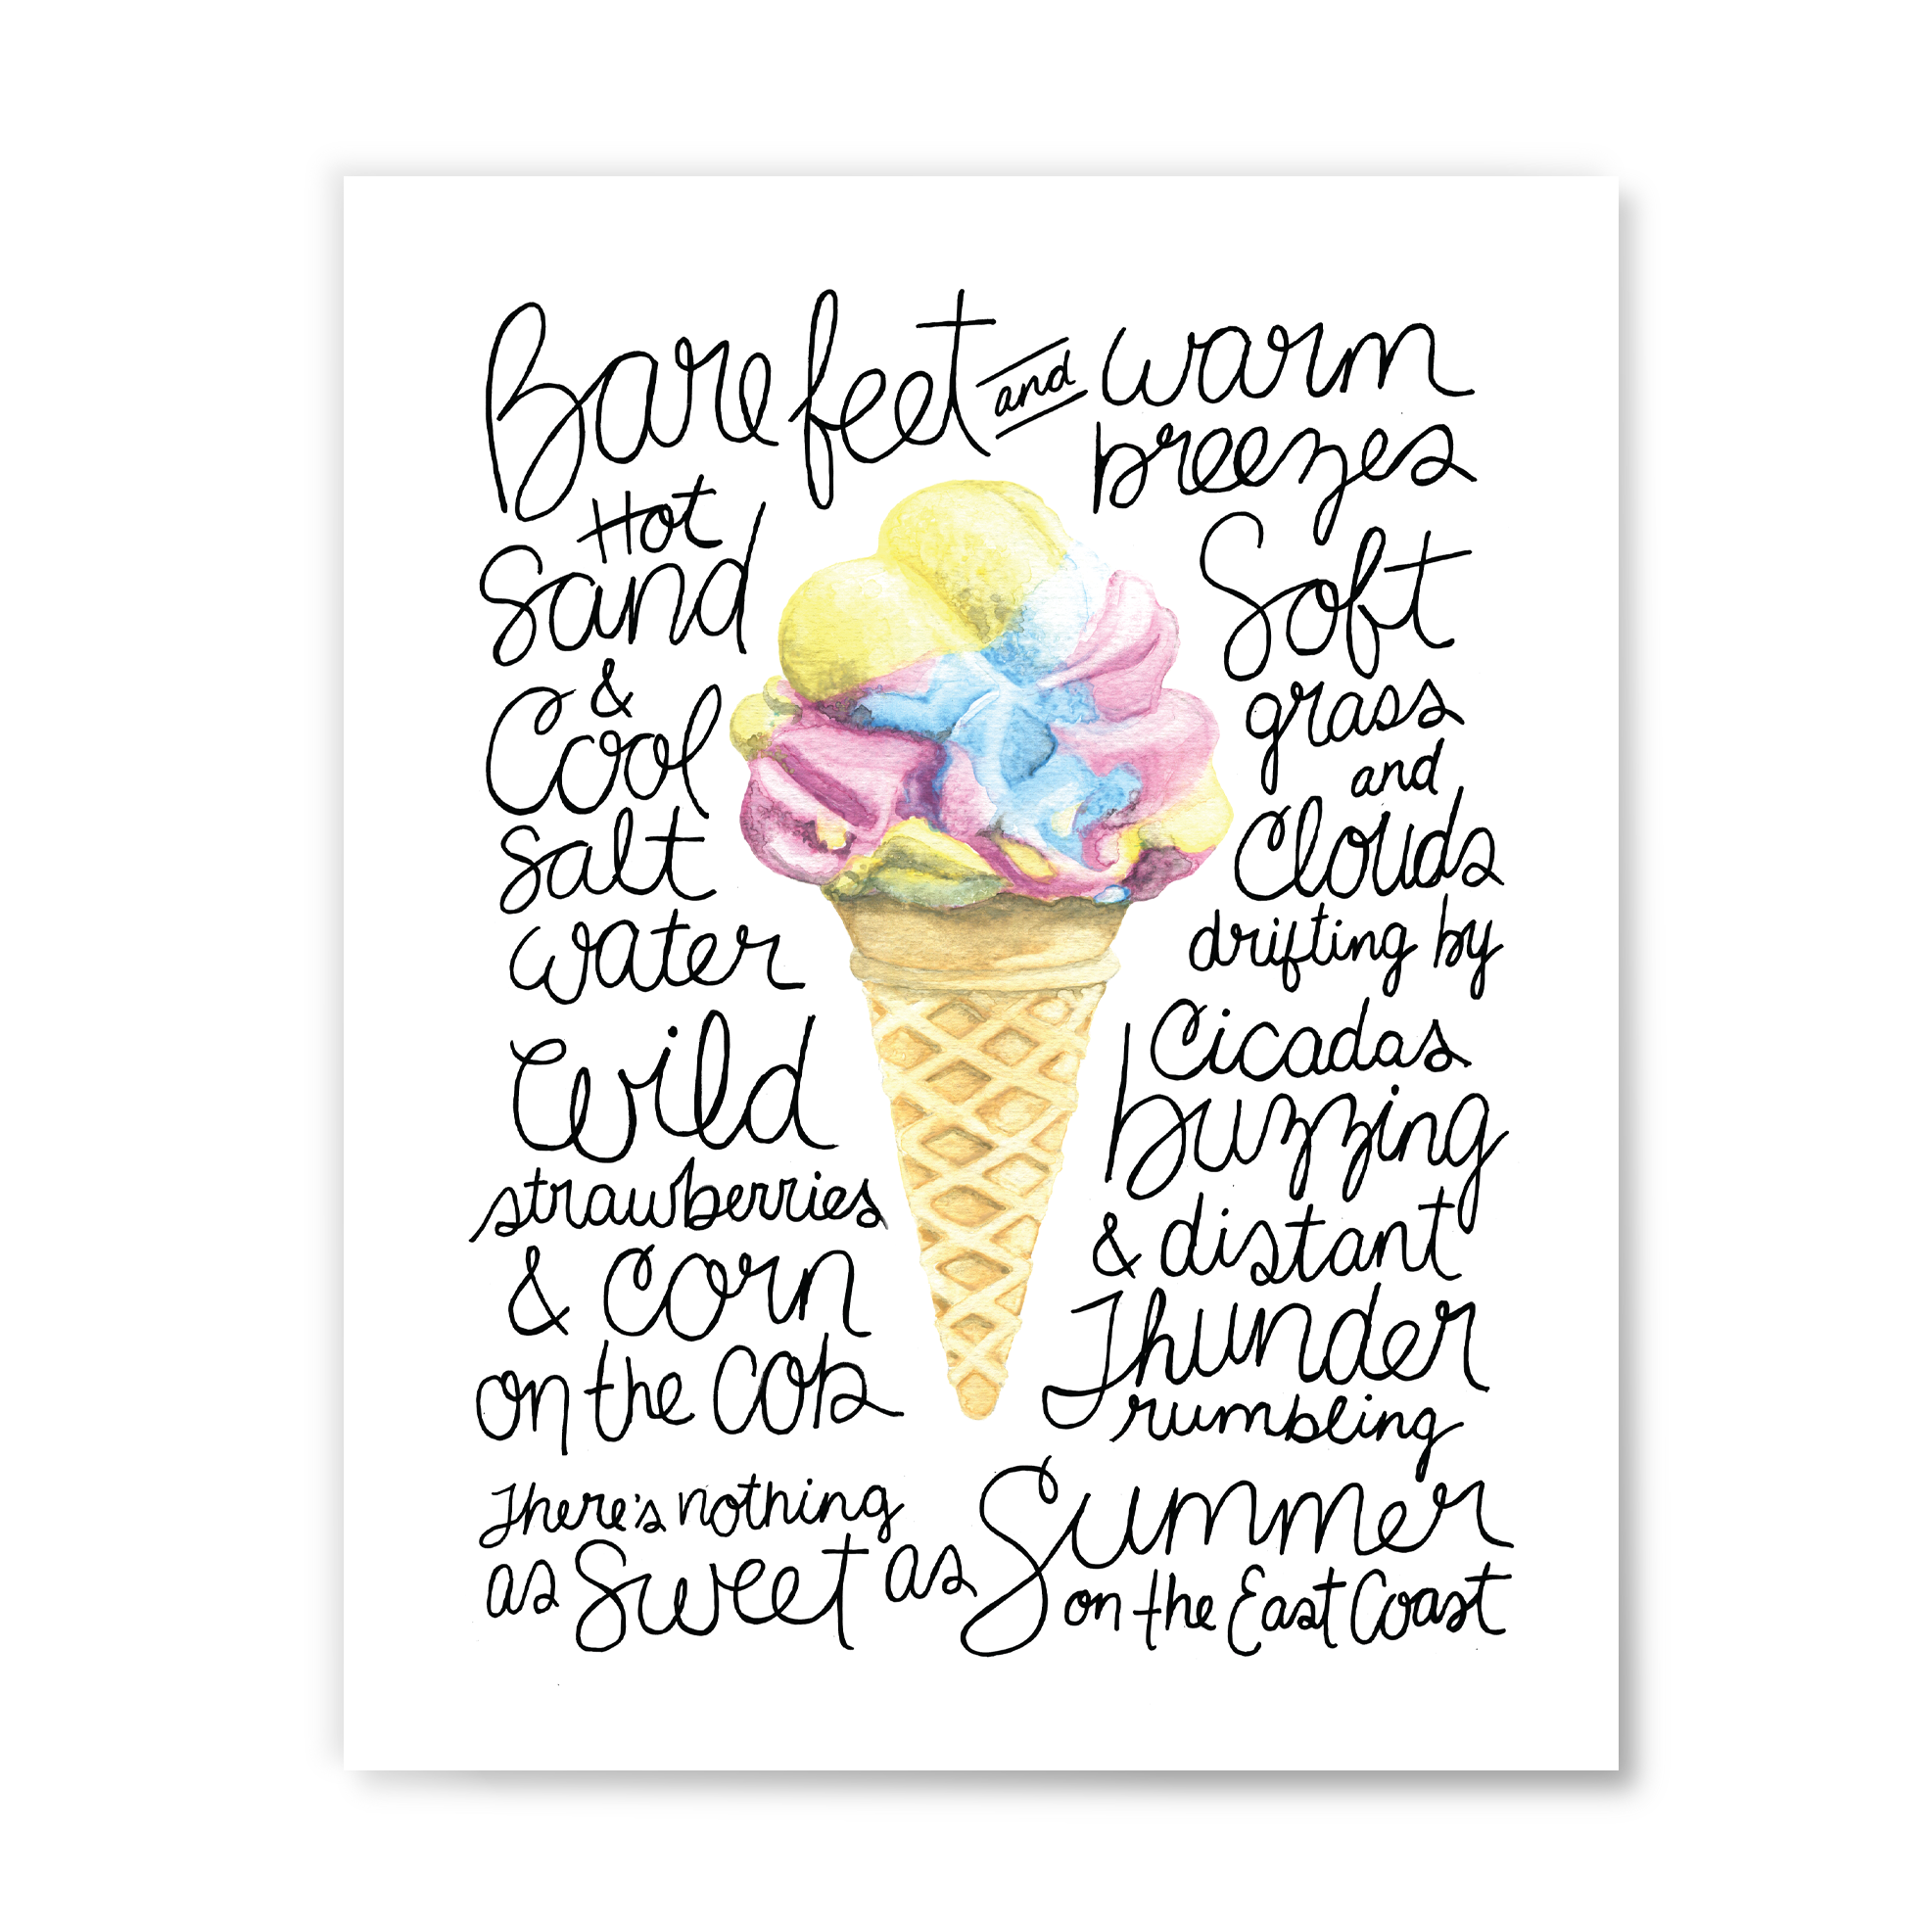 Bare feet and warm
breezes
Hot
Sand
&
Cool
salt
water
Wild
strawberries
& corn
on the cob
Soft
grass
and
Clouds
drifting by
Cicadas
buzzing
& distant
Thunder
rumbling
There's nothing
as Sweet as Summer
on the East Coast